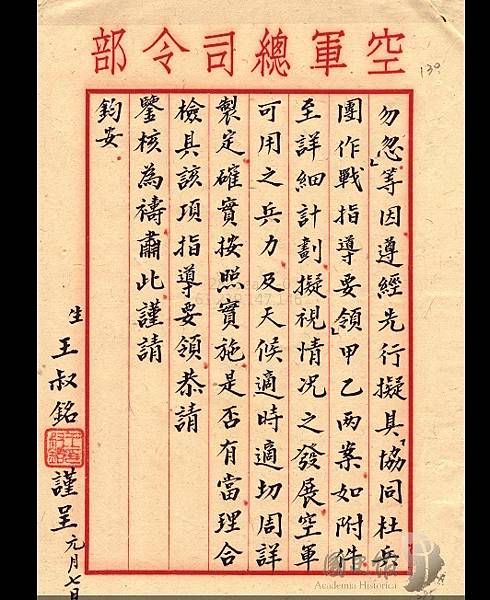 空軍總司令部
130
勿忽」等因遵經先行擬具「協同杜兵
團作戰指導要領」甲乙兩案如附件
至詳細計劃擬視情况之發展空軍
可用之兵力及天候適時適切周詳
製定確實按照實施是否有當理合
檢具該項指導要領恭請
鑒核為禱肅此謹請
鈞安
生王叔銘謹呈元月七日
國史館
Academia Historica